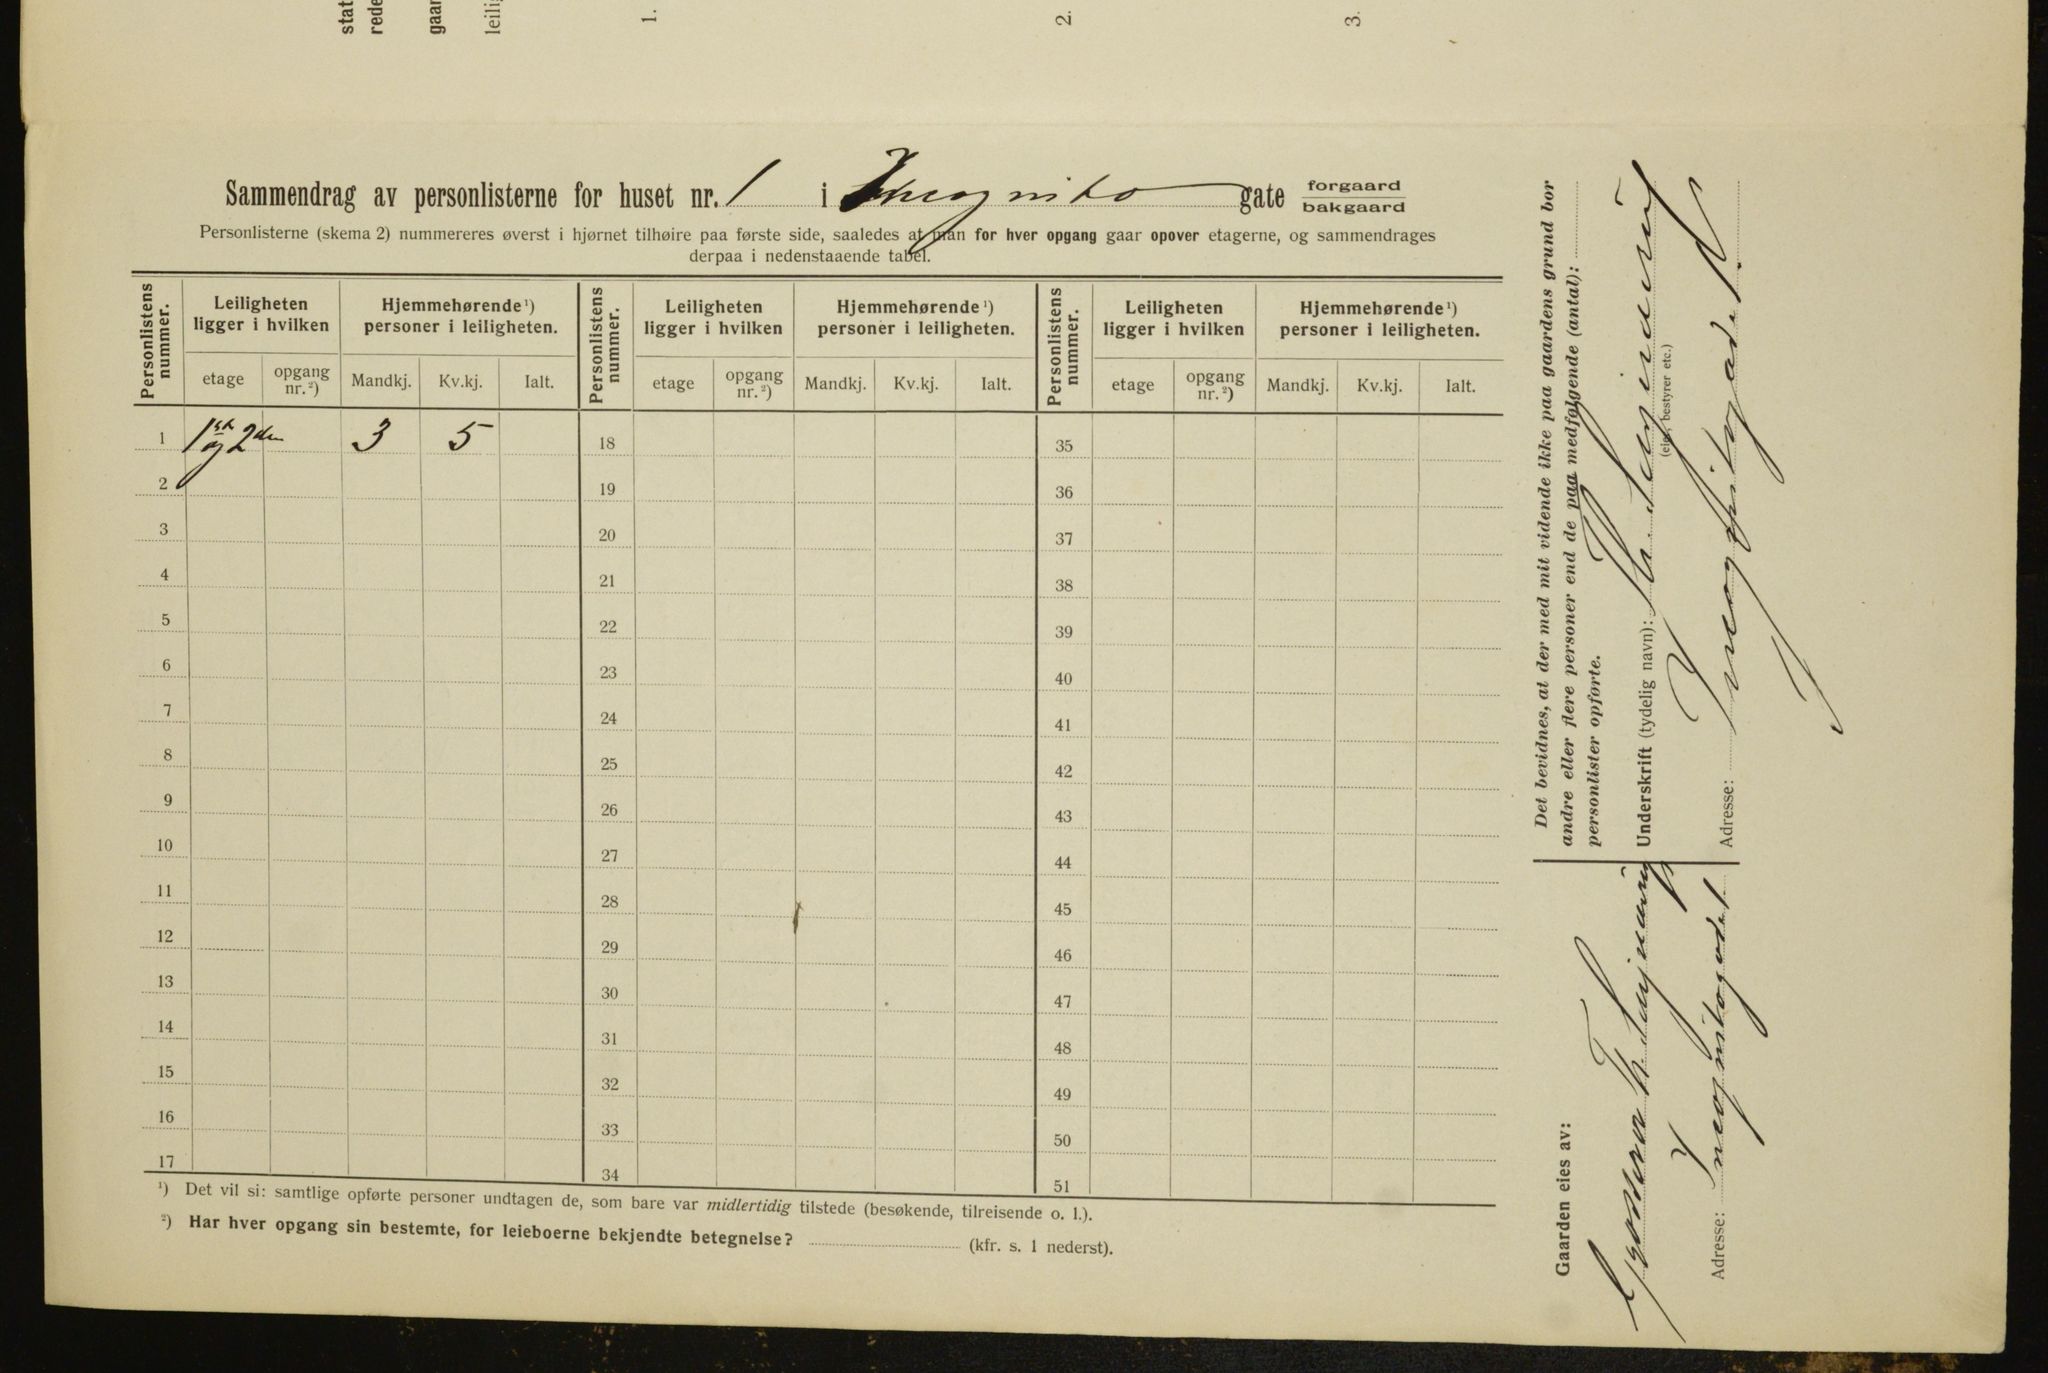 stat
rede
gaar
leilig
1.
2.
3.
Sammendrag av personlisterne for huset nr. 1 i Incognito gate forgaard
bakgaard
Personlisterne (skema 2) nummereres øverst i hjørnet tilhøire paa første side, saaledes at man for hver opgang gaar opover etagerne, og sammendrages
derpaa i nedenstaaende tabel.
Personlistens nummer. Leiligheten ligger i hvilken Hjemmehørende ¹) personer i leiligheten. Personlistens nummer. Leiligheten ligger i hvilken Hjemmehørende ¹) personer i leiligheten. Personlistens nummer. Leiligheten ligger i hvilken Hjemmehørende ¹) personer i leiligheten.
etage opgang nr. ²) Mandkj. Kv.kj. Ialt. etage opgang nr. ²) Mandkj. Kv.kj. Ialt. etage opgang nr. ²) Mandkj. Kv.kj. Ialt.
1 1ste og 2den 3 5 18 35
2 19 36
3 20 37
4 21 38
5 22 39
6 23 40
7 24 41
8 25 42
9 26 43
10 27 44
11 28 45
12 29 46
13 30 47
14 31 48
15 32 49
16 33 50
17 34 51
¹) Det vil si: samtlige opførte personer undtagen de, som bare var midlertidig tilstede (besøkende, tilreisende o. l.).
²) Har hver opgang sin bestemte, for leieboerne bekjendte betegnelse? (kfr. s. 1 nederst).
Det bevidnes, at der med mit vidende ikke paa gaardens grund bor
andre eller flere personer end de paa medfølgende (antal):
personlister opførte.
Underskrift (tydelig navn): Th.
(eier, bestyrer etc.)
Adresse: Incognitogade 1
Gaarden eies av:
Th.
Adresse: Incognitogade 1